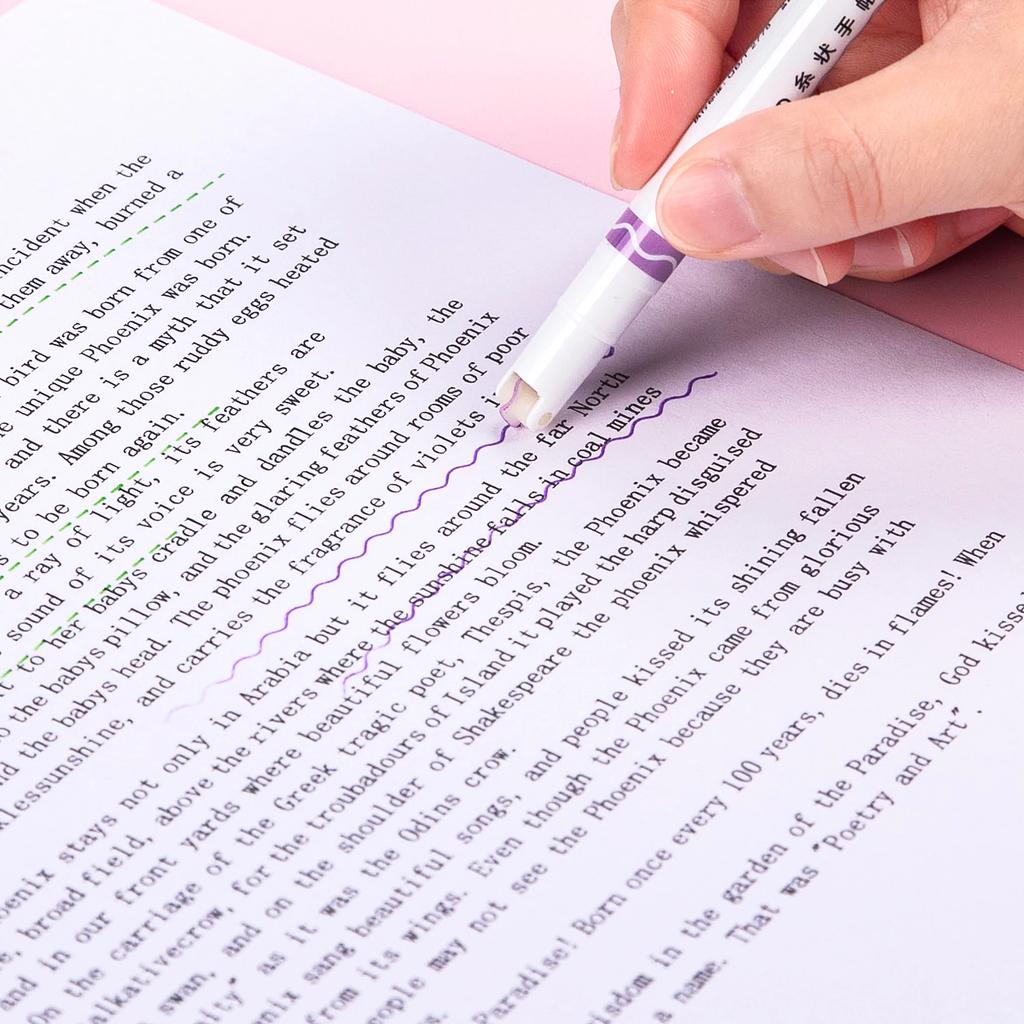 系状手
ncident when the
them away, burned a
bird was born from one of
unique Phoenix was born.
and there is a myth that it set
years. Among those ruddy eggs heated
s to be born again.
a ray of light, its feathers are
sound of its voice is very sweet.
to her babys cradle and dandles the baby, the
o the babys pillow, and the glaring feathers of Phoenix
d the babys head. The phoenix flies around rooms of poor
lessunshine, and carries the fragrance of violets i
oenix stays not only in Arabia but it flies around the far North
broad field, above the rivers where the sunshine falls in coal mines
and in our front yards where beautiful flowers bloom.
On the carriage of the Greek tragic poet, Thespis, the Phoenix became
alkativecrow, for the troubadours of Island it played the harp disguised
swan, and on the shoulder of Shakespeare the phoenix whispered
ity" as it was the Odins crow.
enix sang beautiful songs, and people kissed its shining fallen
from its wings. Even though the Phoenix came from glorious
eople may not see the Phoenix because they are busy with
s.
Paradise! Born once every 100 years, dies in flames! When
isdom in the garden of the Paradise, God kisse
a name. That was "Poetry and Art".